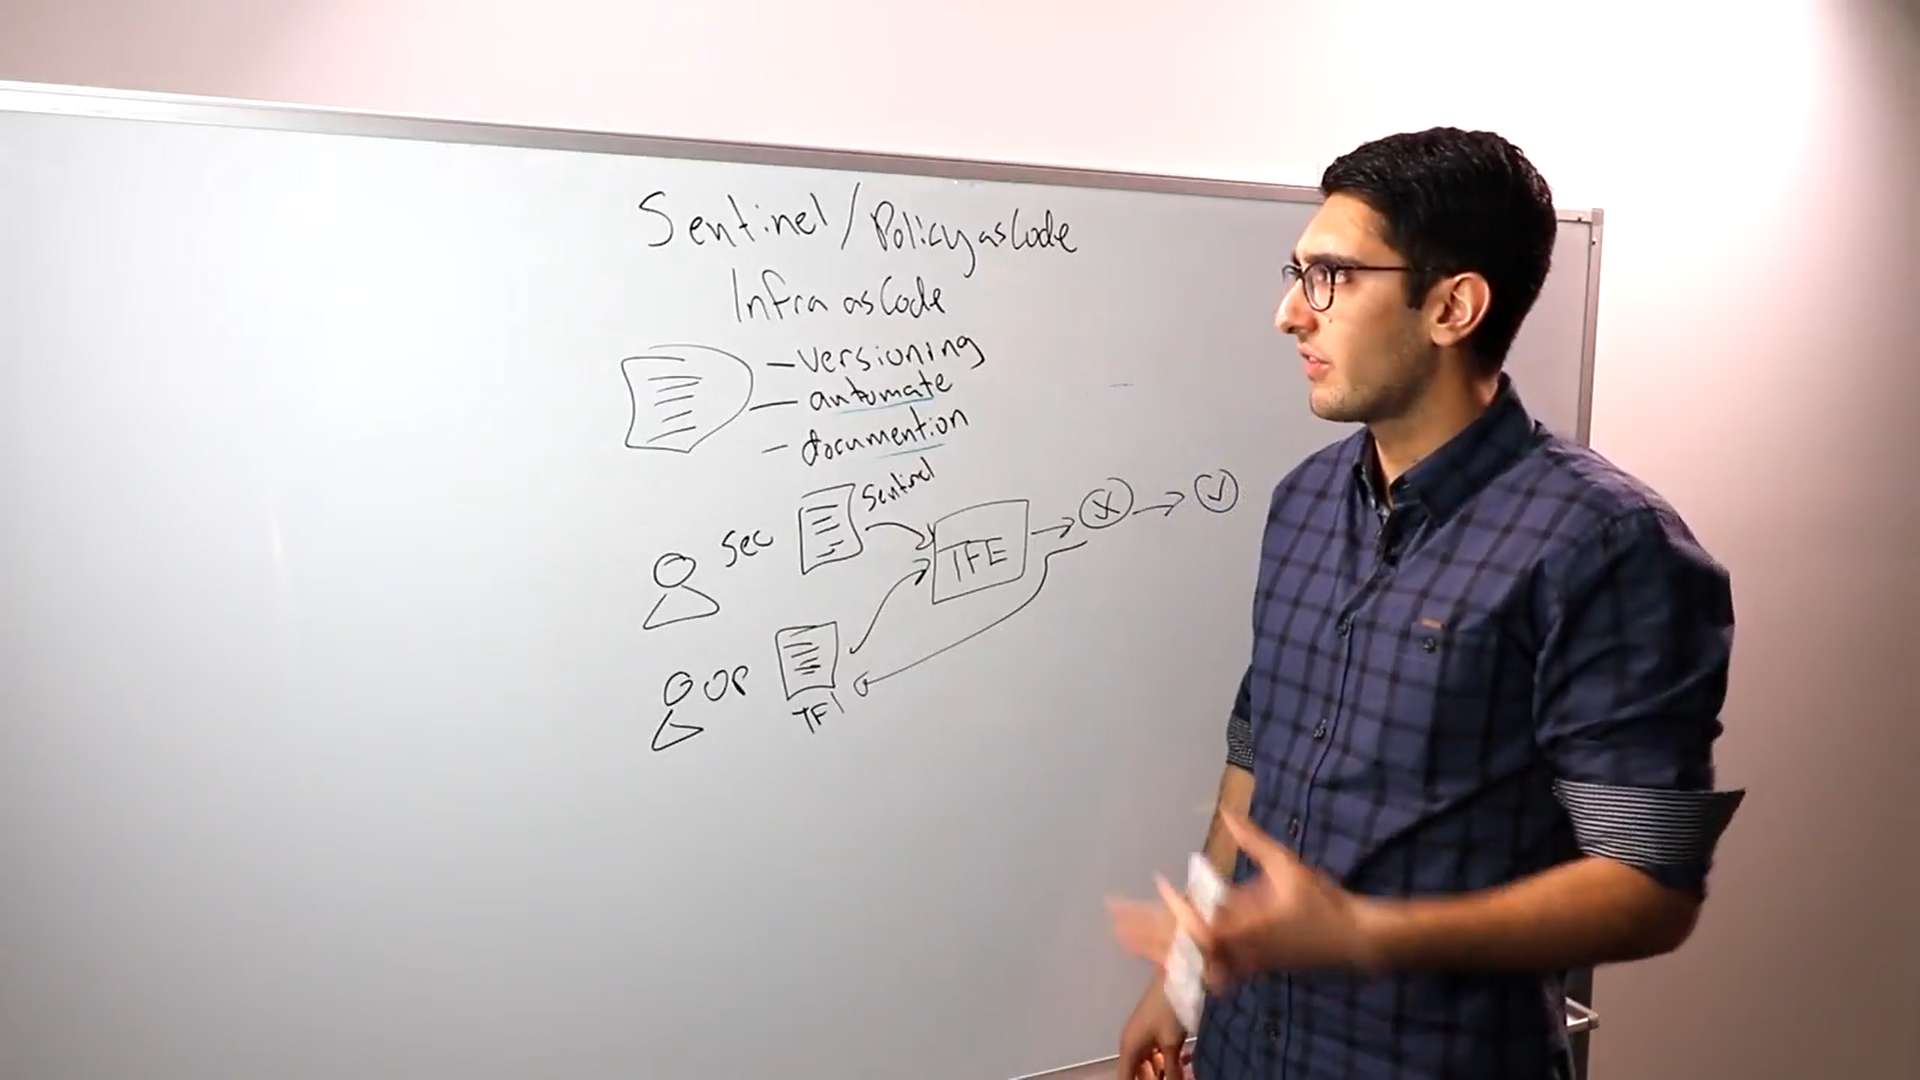 Sentinel / Policy as Code
Infra as Code
- versioning
- automate
- documention
Sentinel
Sec
TFE
OP
TF